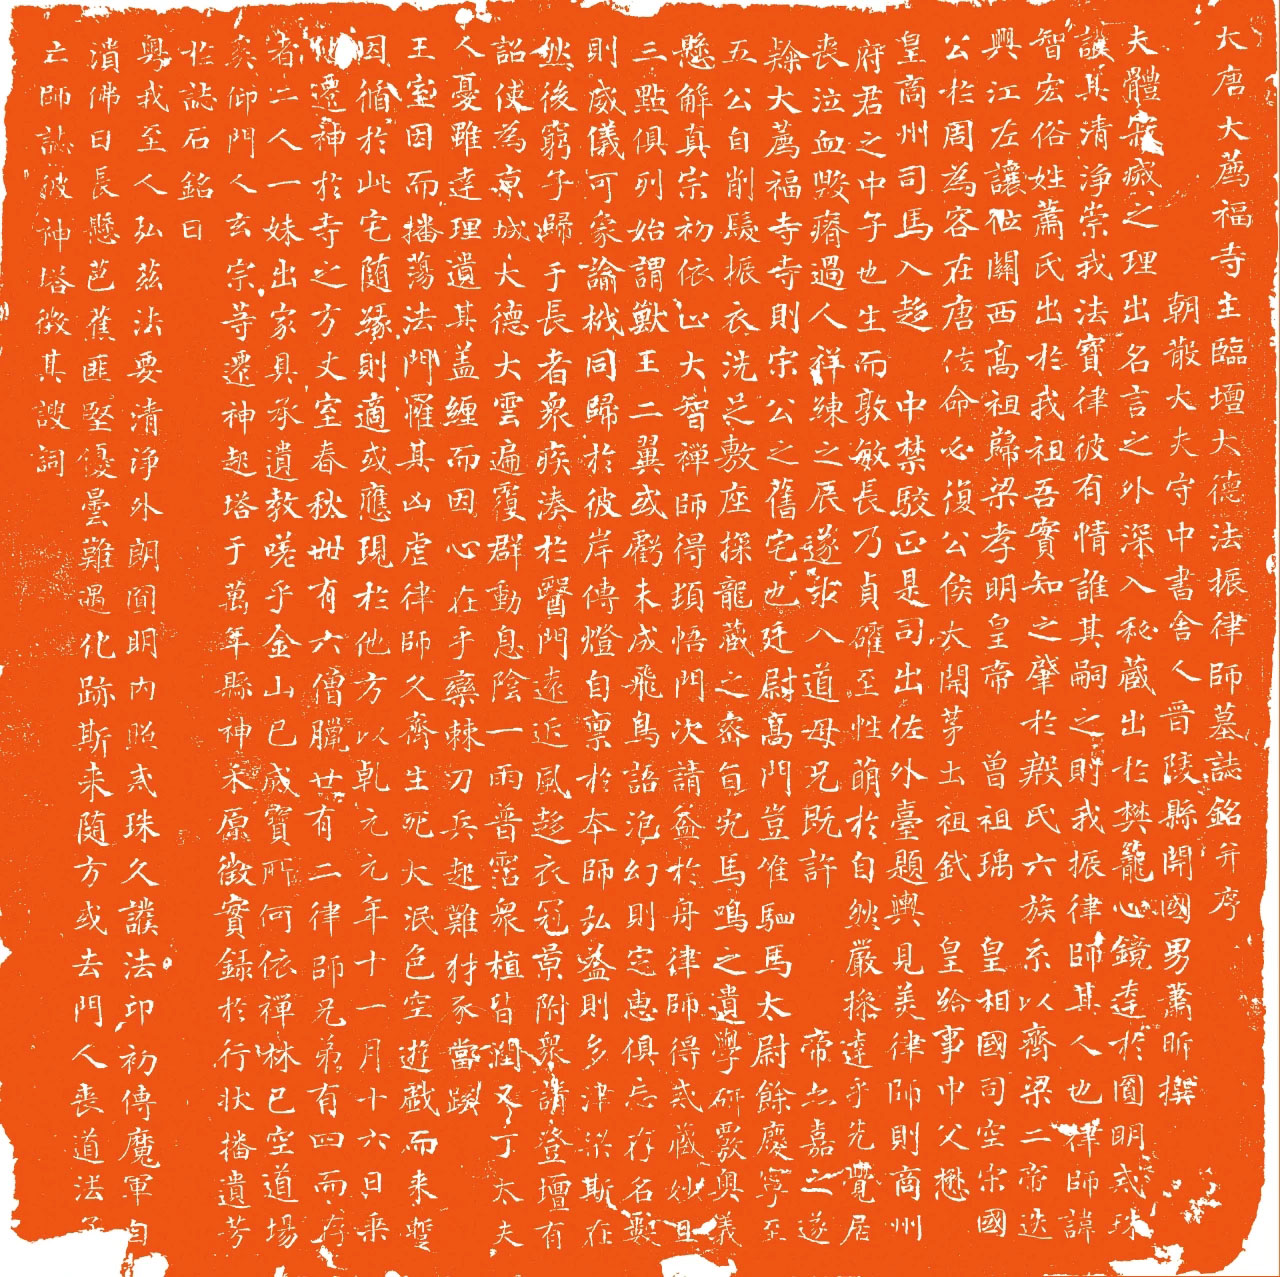 大唐大薦福寺主臨壇大德法振律師墓誌銘并序
朝散大夫守中書舍人晉陵縣開國男蕭昕撰
夫體寂滅之理出名言之外深入秘藏出於樊籠心鏡達於圓明戒珠
護其清淨崇我法寶律彼有情誰其嗣之則我振律師其人也律師諱
智宏俗姓蕭氏出於我祖吾實知之肇於殷氏六族系以齊梁二帝迭
興江左讓位關西高祖巋梁孝明皇帝 曾祖瑀 皇相國司空宋國
公於周為客在唐佐命必復公侯大開茅土祖鉞 皇給事中父懋
皇商州司馬入趍 中禁駮正是司出佐外臺題輿見美律師則商州
府君之中子也生而敦敏長乃貞確至性萌於自然嚴操達乎先覺居
喪泣血毀瘠過人祥練之辰遂求入道母兄既許 帝亦嘉之遂
隸大薦福寺寺則宋公之舊宅也廷尉高門豈惟駟馬太尉餘慶寧至
五公自削髮振衣洗足敷座探龍藏之密自究馬鳴之遺學研覈奧義
懸解真宗初依止大智禪師得頓悟門次請益於舟律師得戒藏妙且
三點俱列始謂獸王二翼或虧未成飛鳥語泡幻則定惠俱忘存名數
則威儀可象諭栰同歸於彼岸傳燈自稟於本師弘益則多津梁斯在
然後窮子歸于長者眾疾湊於醫門遠近風趍衣冠景附眾請登壇有
詔使為京城大德大雲遍覆群動息陰一雨普霑眾植皆潤又丁太夫
人憂雖達理遺其蓋纏而因心在乎欒棘刀兵起難犲豕當蹊
王室因而播蕩法門罹其凶虐律師久齊生死大泯色空遊戲而来蹔
因循於此宅随緣則適或應現於他方以乹元元年十一月十六日乗
化遷神於寺之方丈室春秋卌有六僧臘廿有二律師兄弟有四而存
者二人一妹出家具承遺教嗟乎金山已滅寶所何依禪林已空道場
奚仰門人玄宗等遷神起塔于萬年縣神禾原徵實錄於行状播遺芳
於誌石銘曰
粤我至人弘兹法要清淨外朗囧明内照戒珠久護法印初傳魔軍自
潰佛日長懸芭蕉匪堅優曇難遇化跡斯来随方或去門人喪道法子
亡師誌彼神塔徵其謏詞